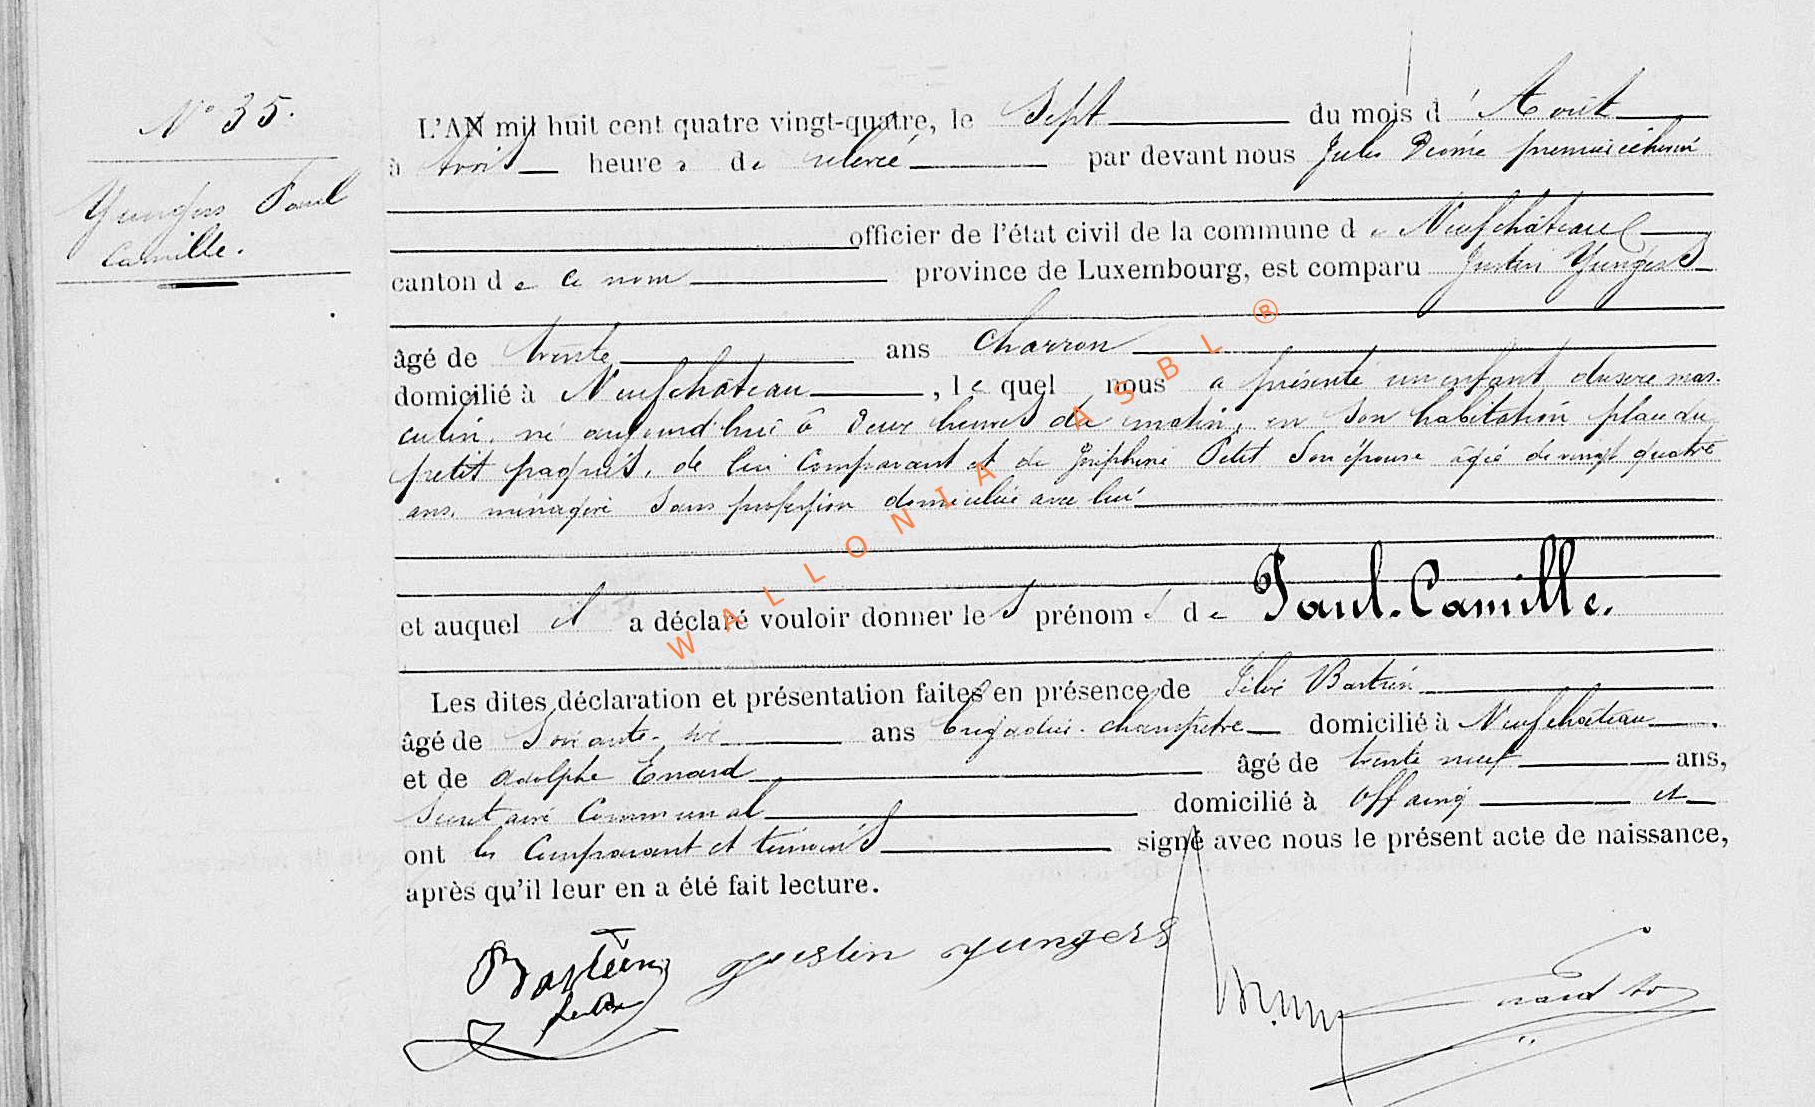 N° 35.
Yungers Paul
Camille.
L'AN mil huit cent quatre vingt-quatre, le Sept du mois d'Août
à trois heures de relevée par devant nous Jules premier échevin
officier de l'état civil de la commune de Neufchâteau
canton de ce nom province de Luxembourg, est comparu Justin Yungers
âgé de trente ans charron
domicilié à Neufchâteau, lequel nous a présenté un enfant du sexe mas-
culin, né aujourd'hui à deux heures du matin, en son habitation place du
petit paquis, de lui comparant et de Joséphine Petit son épouse âgée de vingt quatre
ans, ménagère sans profession domiciliée avec lui
et auquel il a déclaré vouloir donner les prénoms de Paul-Camille.
Les dites déclaration et présentation faites en présence de Bastin
âgé de soixante-six ans brigadier-champêtre domicilié à Neufchâteau.
et de Adolphe Enard âgé de trente neuf ans,
Secrétaire Communal domicilié à Offaing et
ont les comparant et témoins signé avec nous le présent acte de naissance,
après qu'il leur en a été fait lecture.
Bastin Justin Yungers Enard
WALLONIA ASBL ®